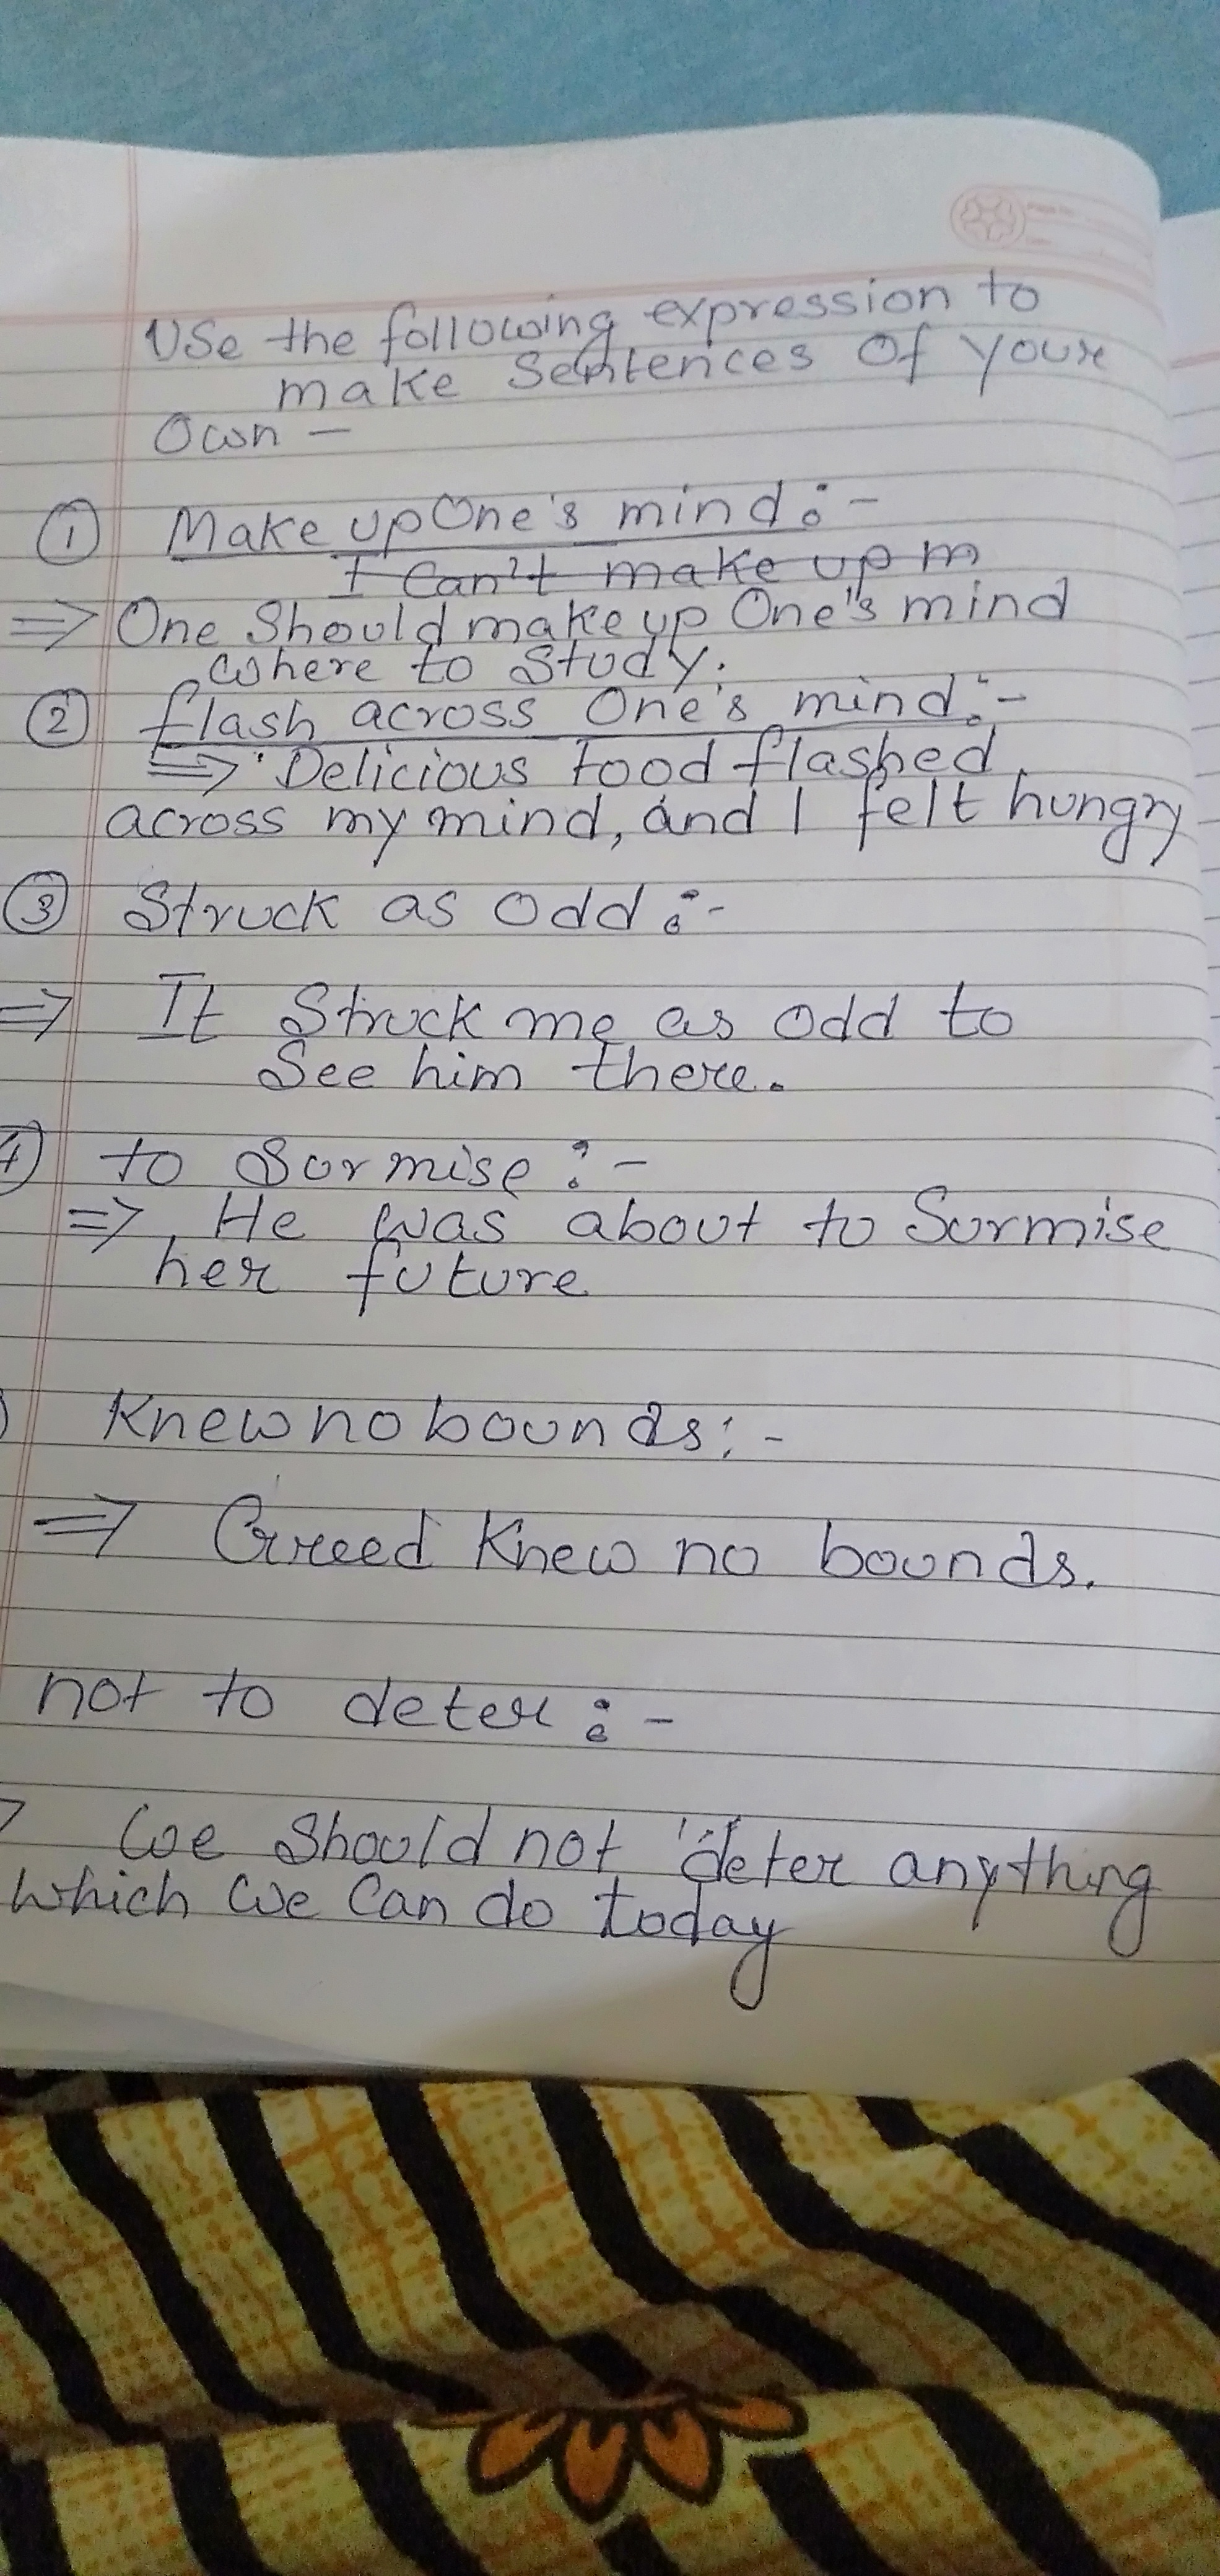 Use the following expression to
make Sentences of your
Own -
① Make up One's mind :-
I Can't make up m
⇒ One Should make up One's mind
where to Study.
② flash across One's mind :-
⇒ Delicious food flashed
across my mind, and I felt hungry
③ Struck as odd :-
⇒ It Struck me as odd to
See him there.
④ to Surmise :-
⇒ He was about to Surmise
her future
Knew no bounds :-
⇒ Greed Knew no bounds.
not to deter :-
We Should not deter anything
which we Can do today